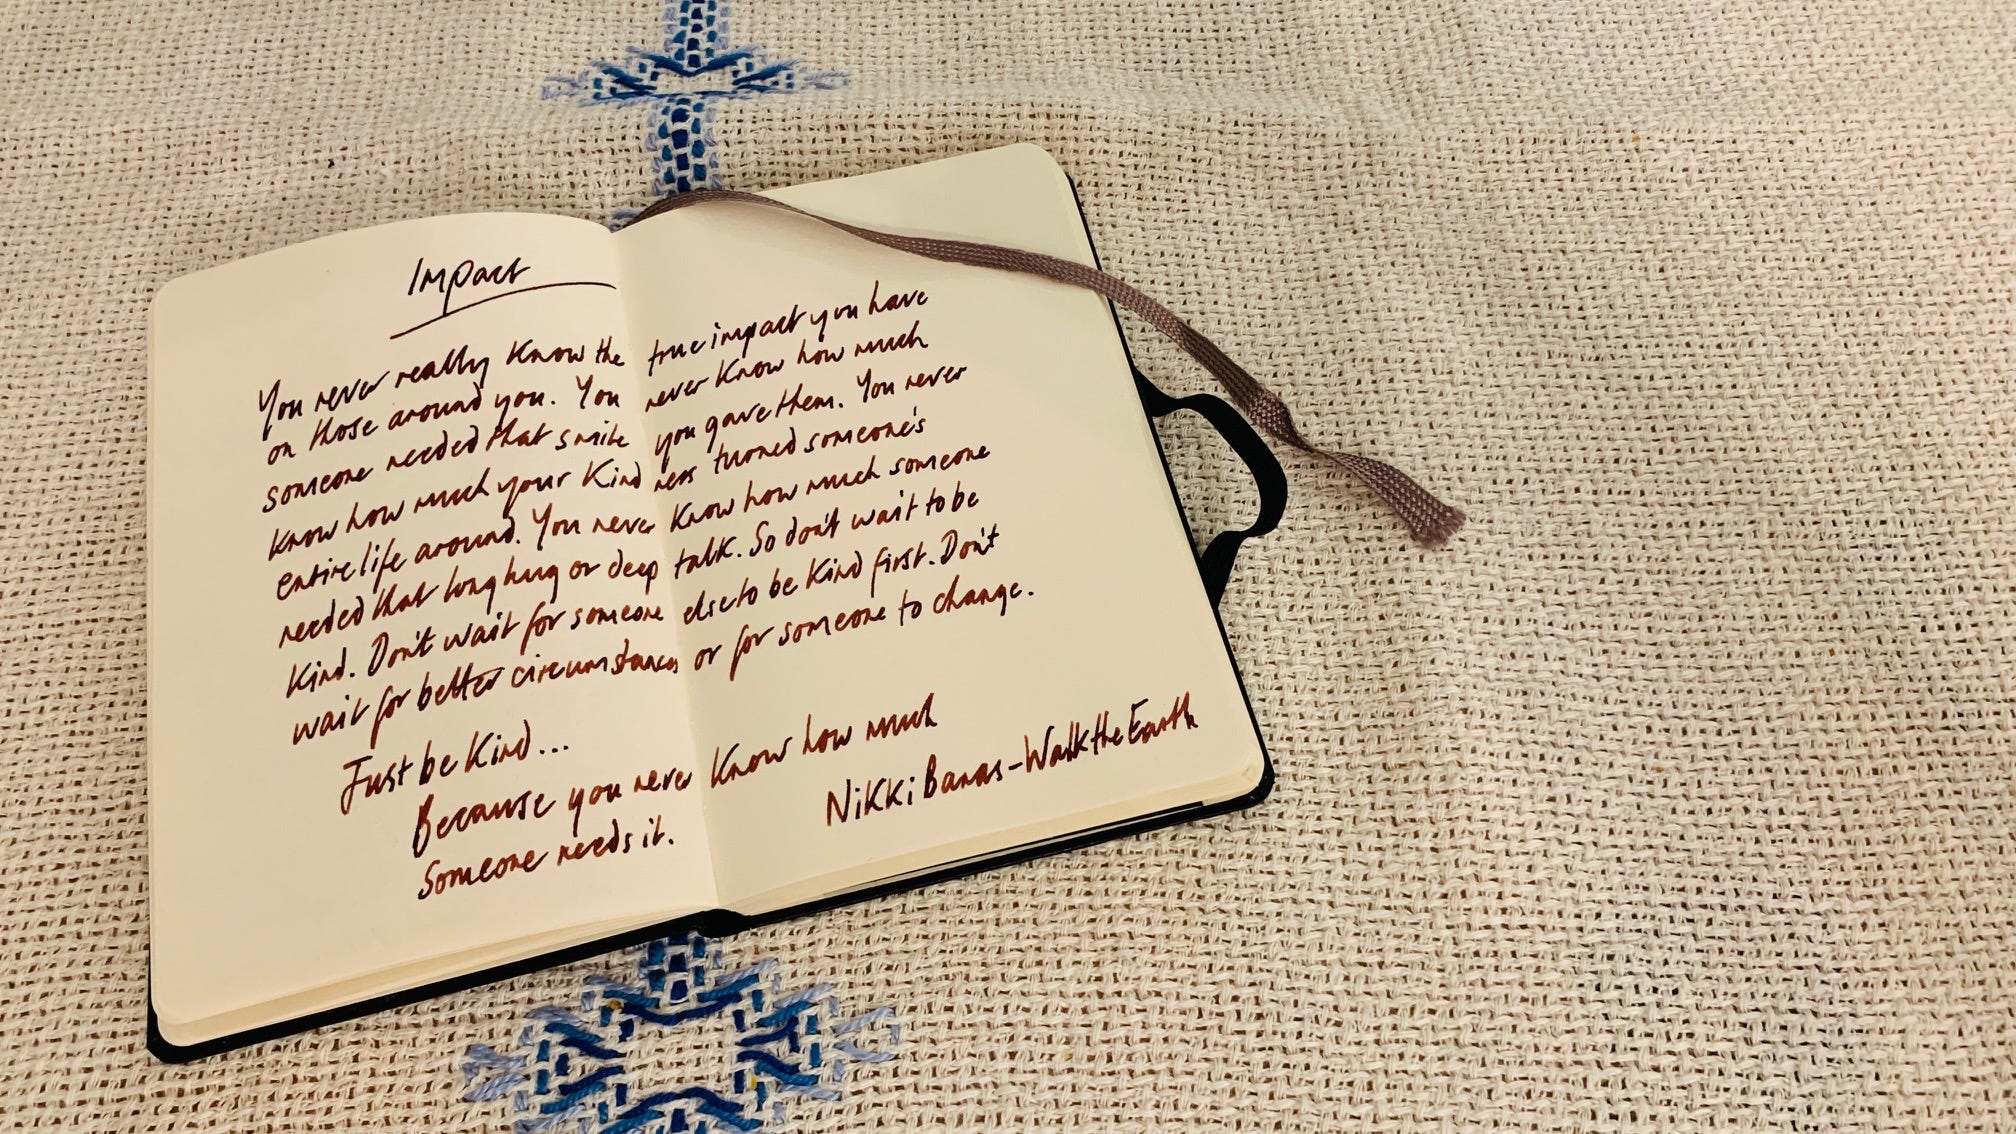 Impact
You never really know the true impact you have
on those around you. You never know how much
someone needed that smile you gave them. You never
know how much your kindness turned someone's
entire life around. You never know how much someone
needed that long hug or deep talk. So don't wait to be
kind. Don't wait for someone else to be kind first. Don't
wait for better circumstances or for someone to change.
Just be kind...
Because you never know how much
someone needs it.
Nikki Banas - Walk the Earth